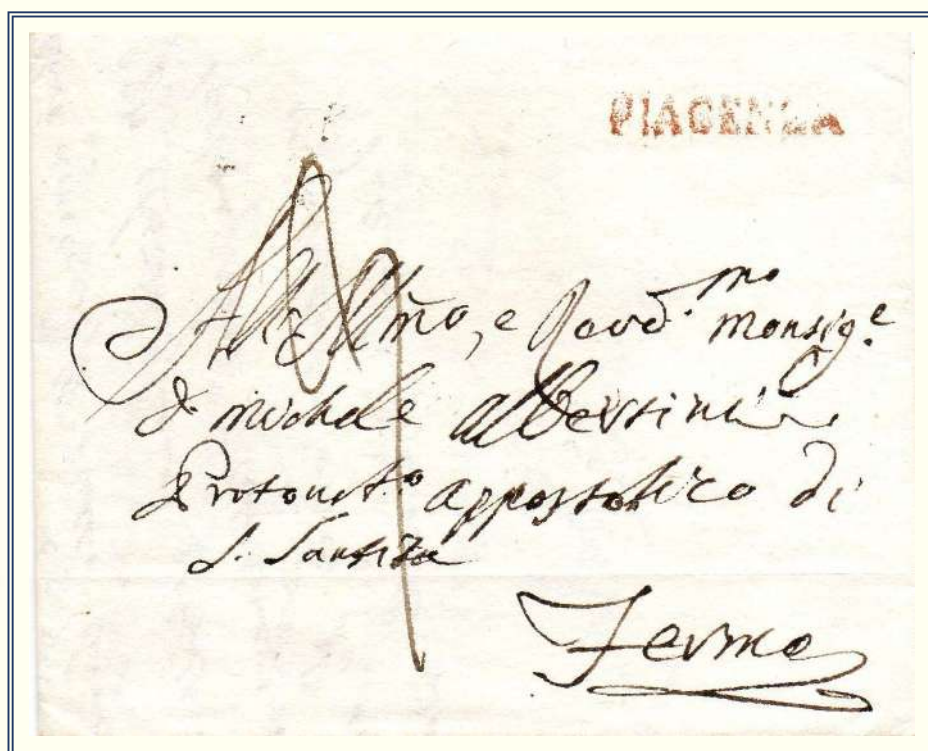 PIACENZA
All Illmo, e Revd.mo Monsig.e
D Michele Albertini
Protonot.o appostolico di
S. Santita
Fermo